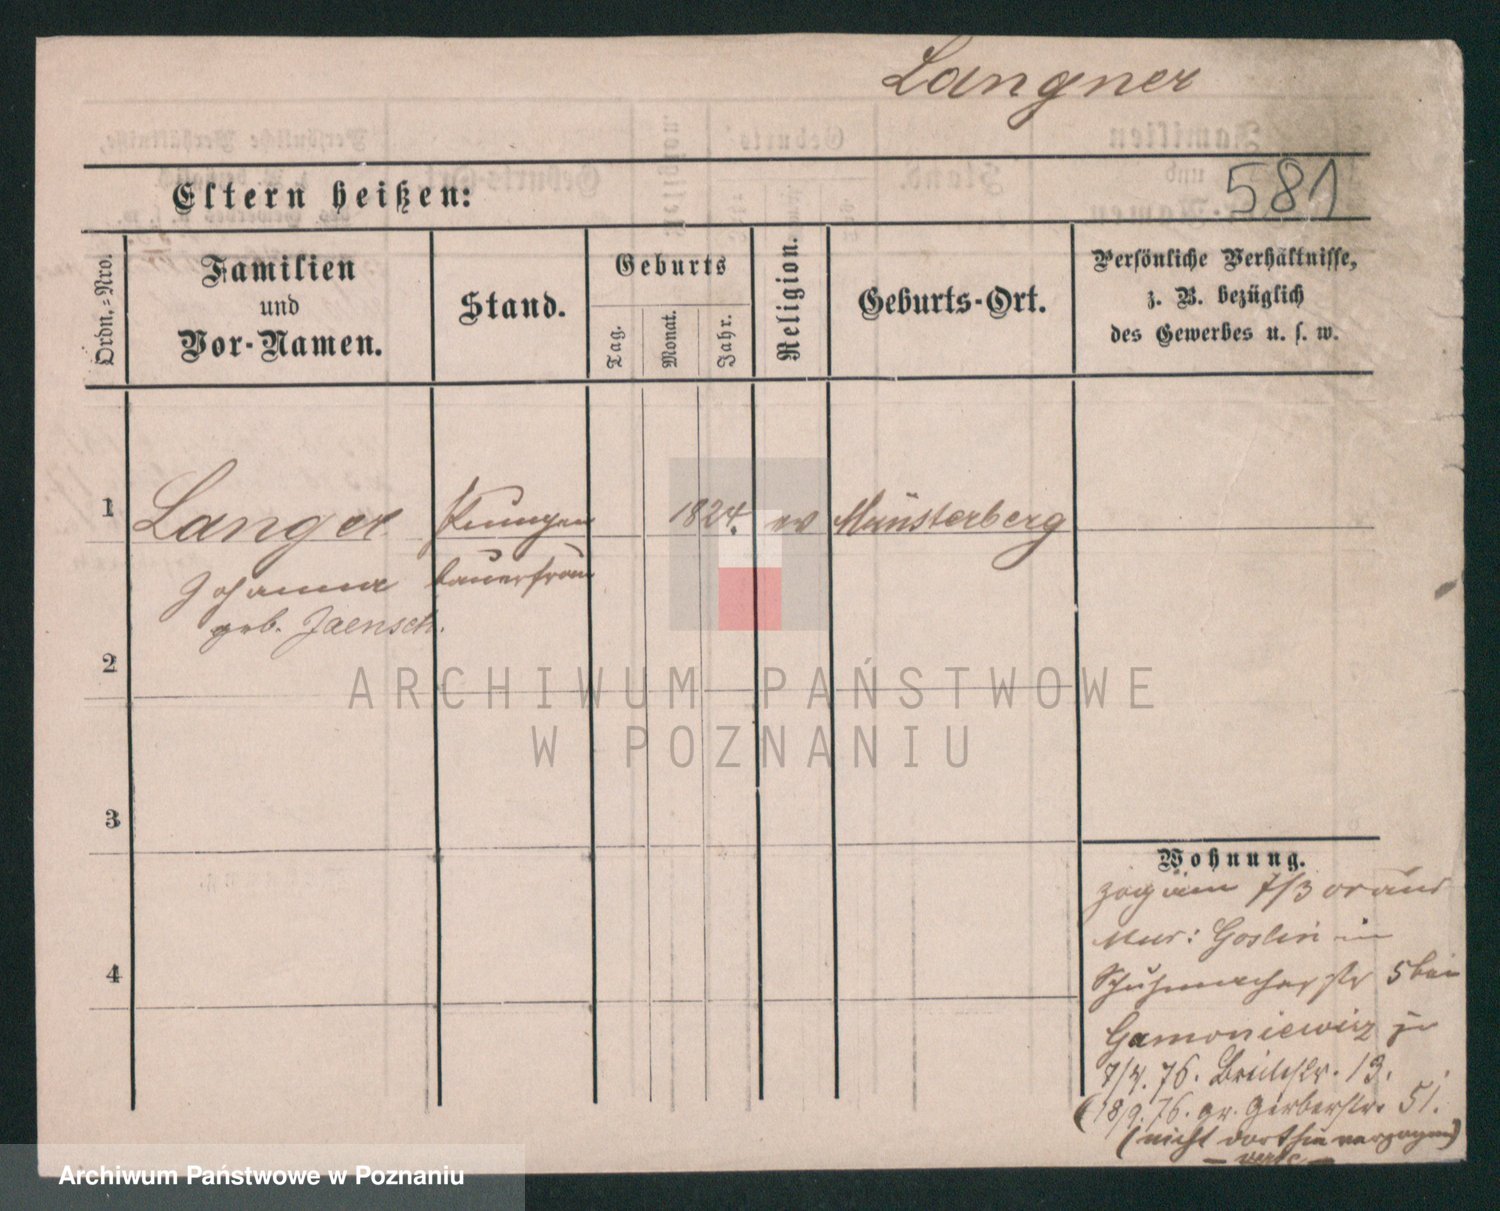 Langner
581
Eltern heißen:
Ordn.=Nro.
Familien
und
Vor-Namen.
Stand.
Geburts
Tag.
Monat.
Jahr.
Religion.
Geburts-Ort.
Persönliche Verhältnisse,
z. B. bezüglich
des Gewerbes u. s. w.
1
Langer
1824.
ev
Münsterberg
Johanna
bauersfrau
geb. Jaensch.
2
ARCHIWUM PAŃSTWOWE
W POZNANIU
3
Wohnung.
zog am 7/3
Mur: Goslin in
4
Schuhmacherstr 5 bei
7/4. 76. 13.
18/9. 76. gr. Gerberstr. 51.
(nicht dorthin verzogen)
Archiwum Państwowe w Poznaniu